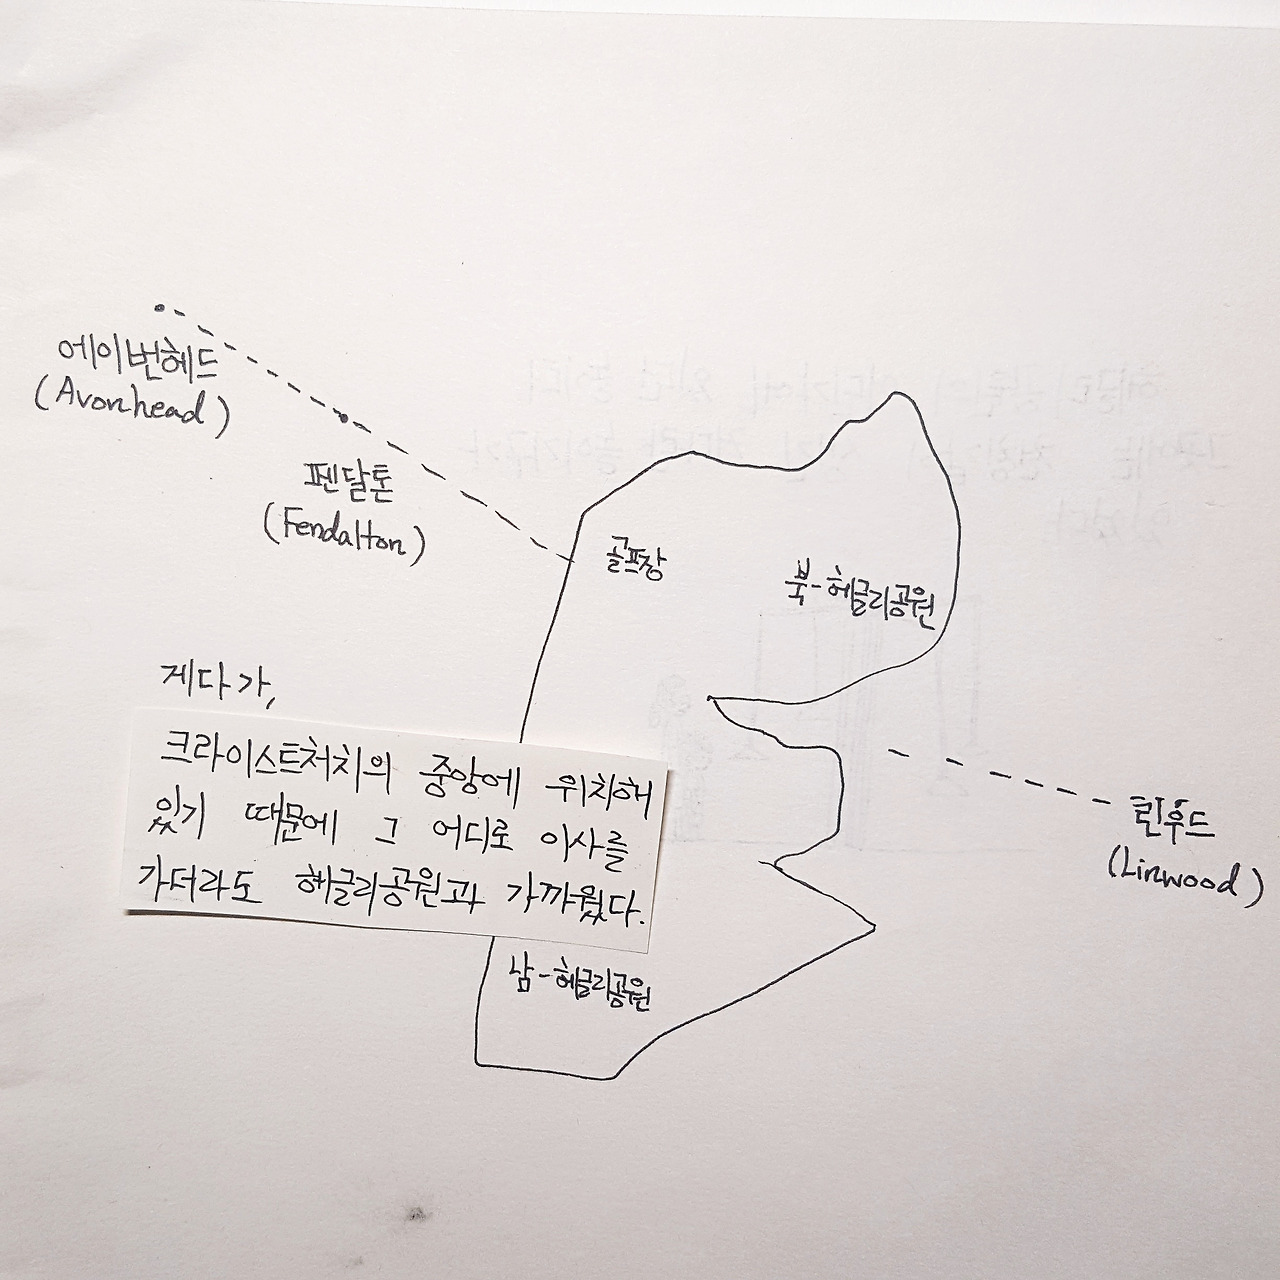 에이번헤드
(Avonhead)
펜달톤
(Fendalton)
골프장
북-헤글리공원
게다가,
크라이스트처치의 중앙에 위치해
있기 때문에 그 어디로 이사를
가더라도 헤글리공원과 가까웠다.
린우드
(Linwood)
남-헤글리공원